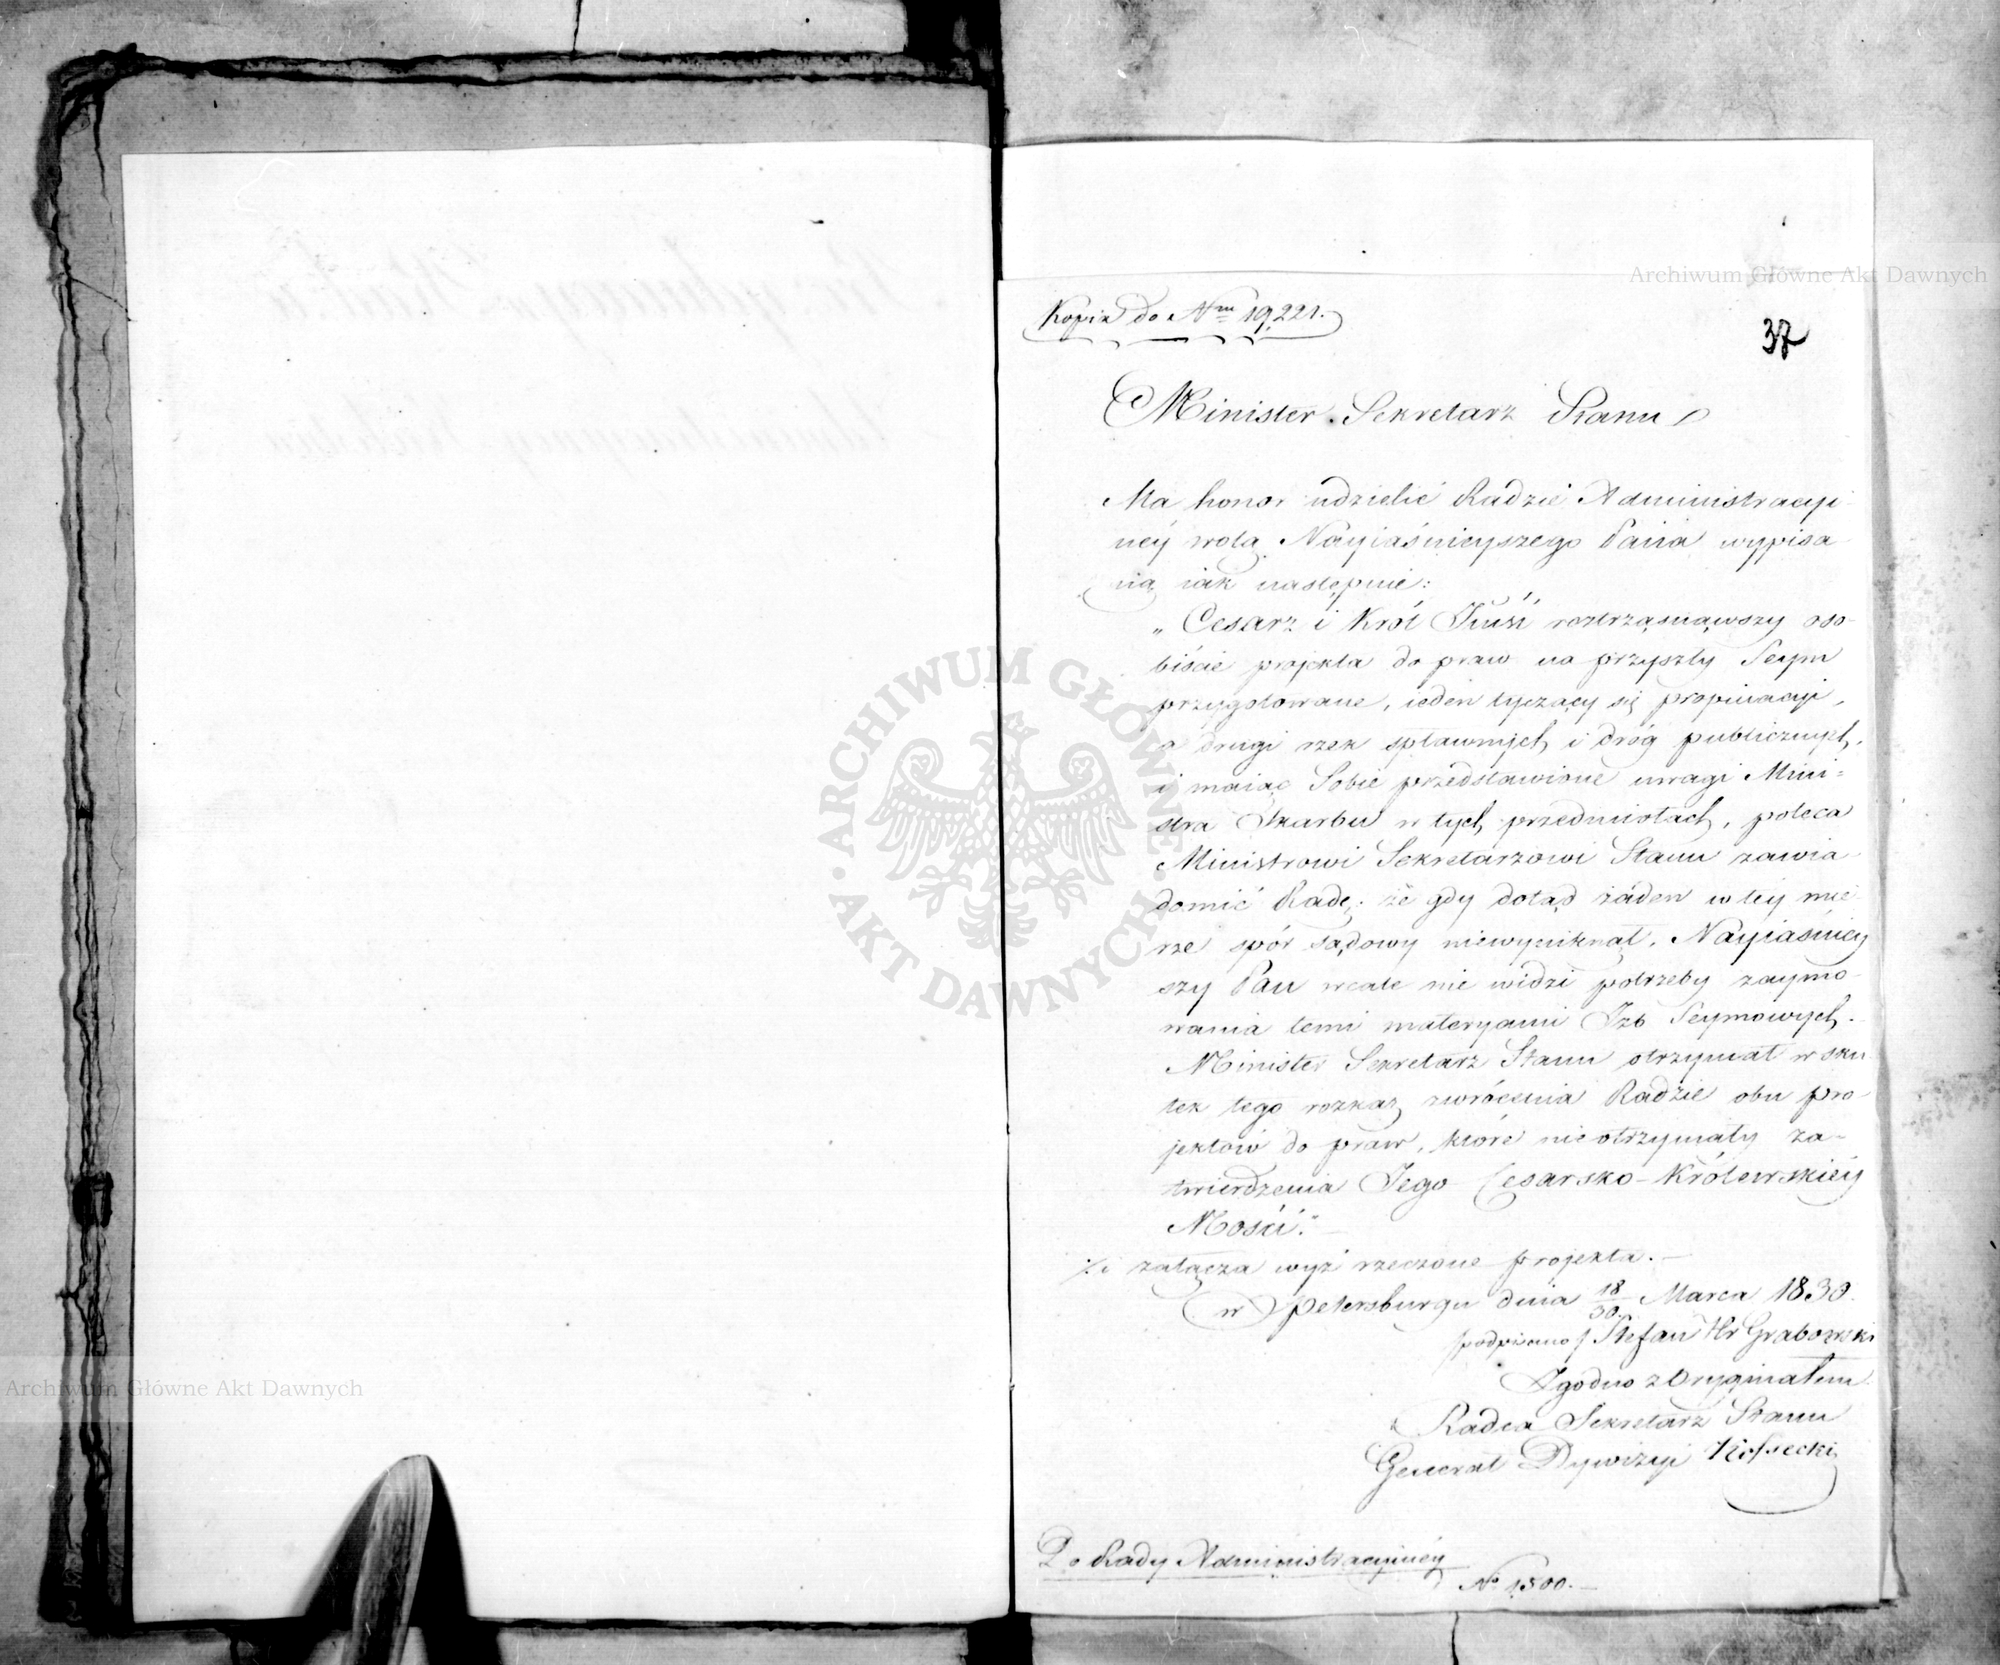 Kopia do Nru 19,221.
37
Minister Sekretarz Stanu
Ma honor udzielić Radzie Administracyi-
néy wolą Nayiaśnieyszego Pana wypisa-
ną iak następuie:
„Cesarz i Król Jmść roztrząsnąwszy oso-
biście projekta do praw na przyszły Seym
przygotowane, ieden tyczący się propinacyi,
a drugi rzek spławnych i dróg publicznych,
i maiąc Sobie przedstawione uwagi Mini=
stra Skarbu w tych przedmiotach, poleca
Ministrowi Sekretarzowi Stanu zawia-
domić Radę; że gdy dotąd żaden w téy mie-
rze spór sądowy niewyniknął, Nayiaśniey-
szy Pan wcale nie widzi potrzeby zaymo-
wania temi materyami Izb Seymowych.
Minister Sekretarz Stanu otrzymał w sku-
tek tego rozkaz zwrócenia Radzie obu pro-
jektów do praw, które nie otrzymały za-
twierdzenia Jego Cesarsko-Królewskiéy
Mości."
i załącza wyż rzeczone projekta.
w Petersburgu dnia 18/30 Marca 1830.
/podpisano/ Stefan Hr Grabowski
Zgodno z Oryginałem
Radca Sekretarz Stanu
Generał Dywizyi Kossecki
Do Rady Administracyinéy
No 1,500.
ARCHIWUM GŁÓWNE AKT DAWNYCH
Archiwum Główne Akt Dawnych
Archiwum Główne Akt Dawnych